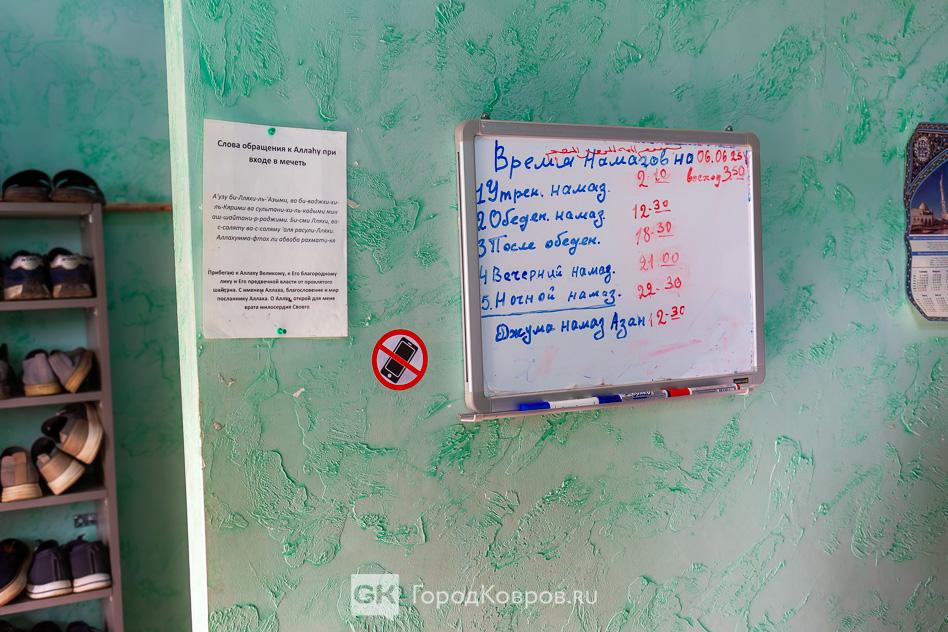 Слова обращения к Аллаhу при
входе в мечеть
А'узу би-Лляхи-ль-'Азыми, ва би-ваджхи-хи-
ль-Кярими ва сультани-хи-ль-кадыми мин
аш-шайтани-р-раджими. Би-сми Лляхи, ва-
с-саляту ва-с-саляму 'аля расули-Лляхи.
Аллахумма-фтах ли абваба рахмати-кя
Прибегаю к Аллаху Великому, и Его благородному
лику и Его предвечной власти от проклятого
шайтана. С именем Аллаха, благословение и мир
посланнику Аллаха. О Аллах, открой для меня
врата милосердия Своего
Время намазов на 06.06 25г
1 Утрен. намаз. 2-10 восход 3 50
2 Обеден. намаз. 12-30
3 После обеден. 18-30
4 Вечерний намаз. 21 00
5. Ночной намаз. 22-30
Джума намаз Азан 12-30
GK ГородКовров.ru